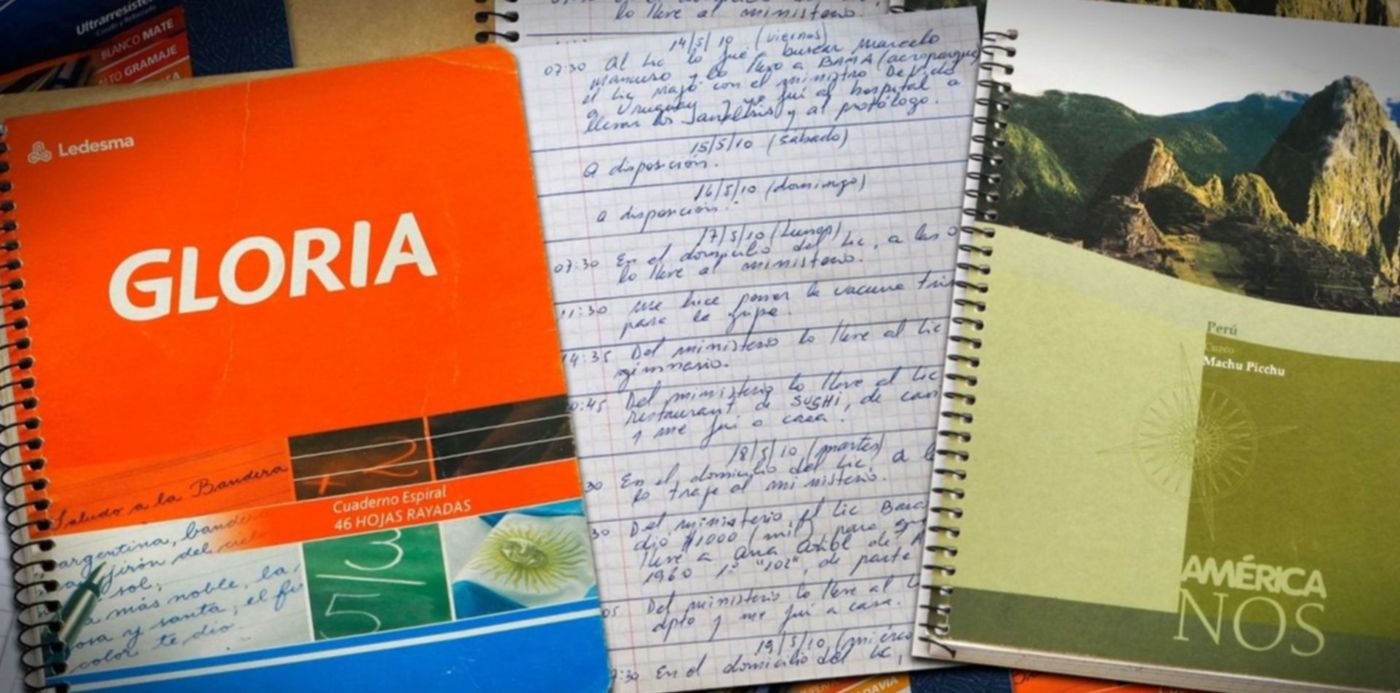 Ultrarresistente
BLANCO MATE
ALTO GRAMAJE
Ledesma
GLORIA
Saludo a la Bandera
Cuaderno Espiral
46 HOJAS RAYADAS
argentina, bandera
jirón del cielo
sol;
más noble, la
y santa, el
color te dio.
lo lleve al ministerio.
14/5/10 (viernes)
07:30 Al Lic lo fui buscar Marcelo
y lo llevo a BAMA (aeroparque)
el Lic viajó con el ministro De Vido
a Uruguay y yo fui al hospital a
llevar los y al
15/5/10 (sábado)
a disposición.
16/5/10 (domingo)
a disposición.
17/5/10 (Lunes)
07:30 En el domicilio del Lic, a las 0
lo lleve al ministerio.
11:30 me hice poner la vacuna
para la gripe.
14:35 Del ministerio lo lleve al Lic
gimnasio.
0:45 Del ministerio lo lleve al Lic
restaurant de SUSHI, de
y me fui a casa.
18/5/10 (martes)
30 En el domicilio del Lic, a
lo traje al ministerio.
30 Del ministerio, el Lic
dio $1000 (mil) para
lleve a Ana de
1960 1º "102", de parte
05 Del ministerio lo lleve al
dpto y me fui a casa.
19/5/10
7:30 En el domicilio del Lic,
Perú
Cuzco
Machu Picchu
AMÉRICA
NOS